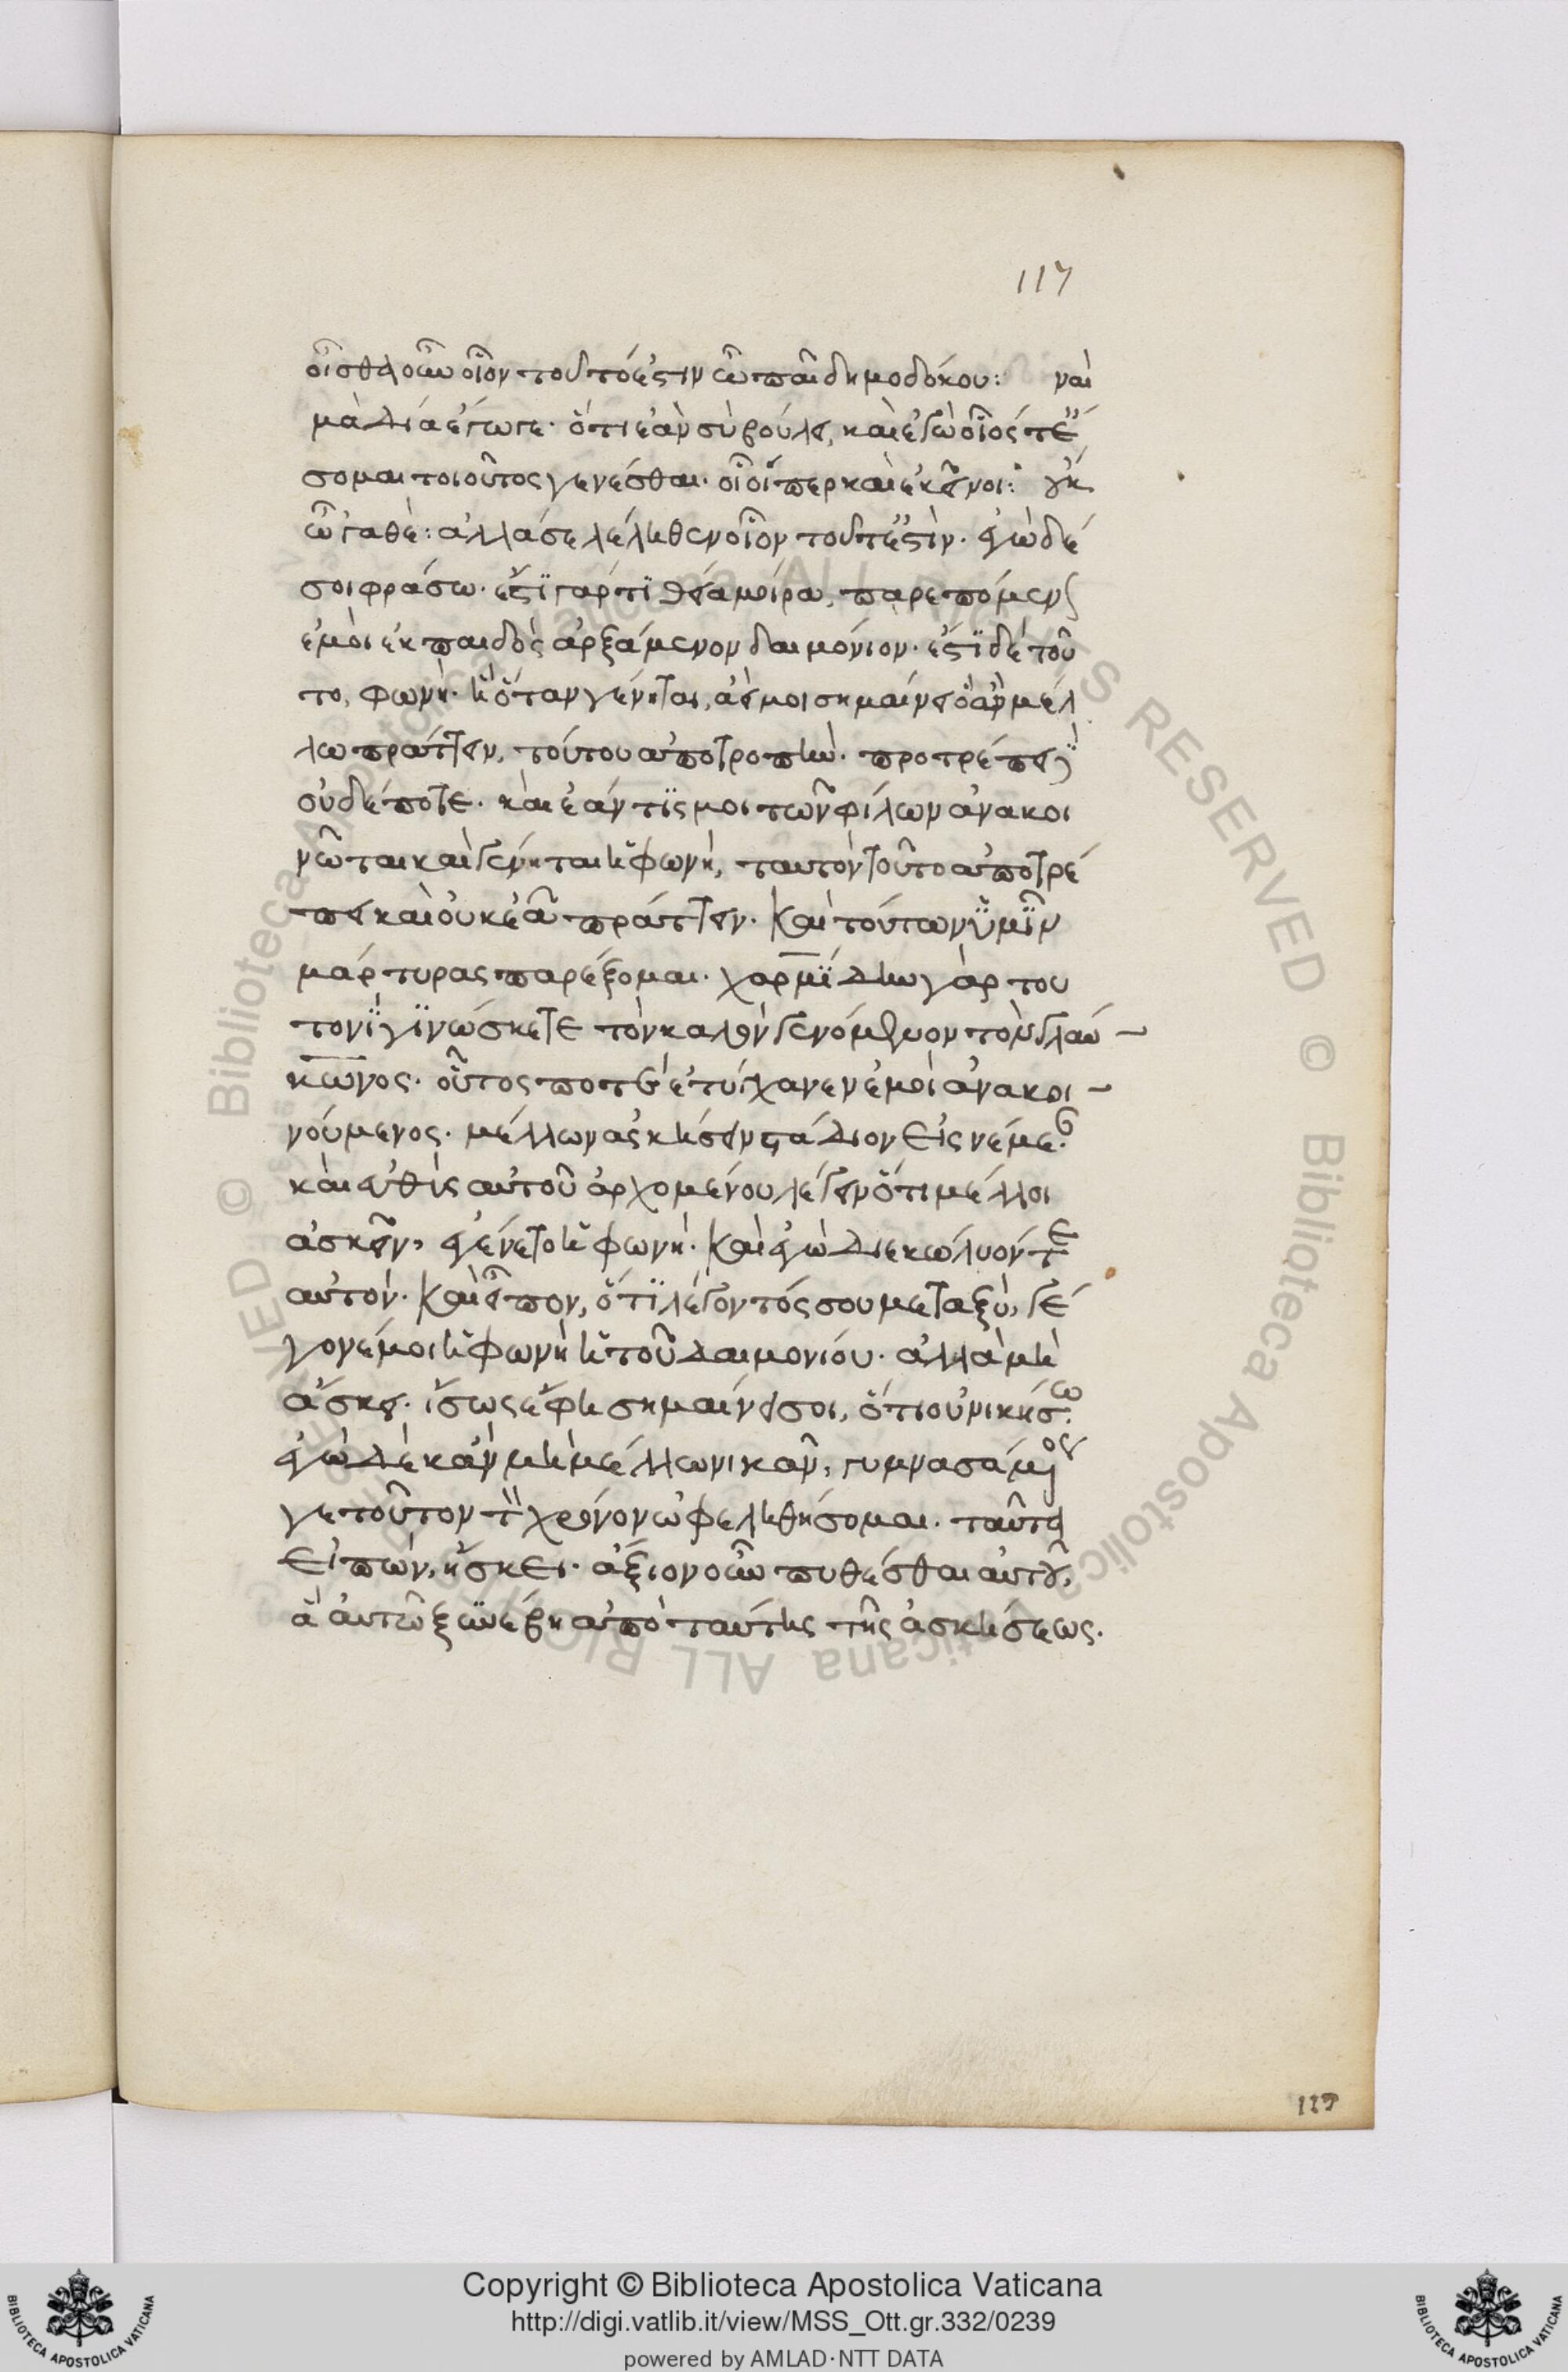 117
οἶσθα οὖν οἷον τοῦτό ἐστιν ὦ παῖ δημοδόκου: ναὶ
μὰ δία ἔγωγε· ὅτι ἐὰν σὺ βούλῃ, καὶ ἐγὼ οἷός τέ
σομαι τοιοῦτος γενέσθαι· οἷοί περ καὶ ἐκεῖνοι: οὐκ
ὦγαθέ: ἀλλά σε λέληθεν οἷον τοῦτ' ἔστιν· ἐγὼ δέ
σοι φράσω· ἔστϊ γάρ τϊ θείᾳ μοίρᾳ, παρεπόμενον
ἐμοὶ ἐκ παιδὸς ἀρξάμενον δαιμόνιον· ἔστϊ δὲ τοῦ
το, φωνὴ· ἣ ὅταν γένηται, ἀεί μοι σημαίνει ὃ ἂν μέλ
λω πράττειν, τούτου ἀποτροπὴν· προτρέπει δὲ
οὐδέποτε· καὶ ἐάν τίς μοι τῶν φίλων ἀνακοι
νῶται καὶ γένηται ἡ φωνὴ, ταυτὸν τοῦτο ἀποτρέ
πει καὶ οὐκ ἐᾶ πράττειν· Καὶ τούτων ὑμῖν
μάρτυρας παρέξομαι· χαρμίδην γὰρ του
τονῒ γϊνώσκετε τὸν καλὸν γενόμενον τὸν γλαύ-
κωνος· οὗτος ποτὲ ἐτύγχανεν ἐμοὶ ἀνακοι-
νούμενος· μέλλων ἀσκήσειν στάδιον εἰς νέμεαν·
καὶ εὐθὺς αὐτοῦ ἀρχομένου λέγειν ὅτι μέλλοι
ἀσκεῖν, ἐγένετο ἡ φωνὴ· Καὶ ἐγὼ διεκώλυόν τε
αὐτόν· Καὶ εἶπον, ὅτϊ λέγοντός σου μεταξὺ, γέ
γονέ μοι ἡ φωνὴ ἡ τοῦ δαιμονίου· ἀλλὰ μὴ
ἄσκει· ἴσως ἔφη σημαίνει σοι, ὅτι οὐ νικήσω·
ἐγὼ δὲ κἂν μὴ μέλλω νικᾶν, γυμνασάμενος
γε τοῦτον τὸν χρόνον ὠφεληθήσομαι· ταῦτα
εἰπὼν, ἤσκει· ἄξιον οὖν πυθέσθαι αὐτοῦ,
ἃ αὐτῶ ξυνέβη ἀπὸ ταύτης τῆς ἀσκήσεως.
119
Copyright © Biblioteca Apostolica Vaticana
http://digi.vatlib.it/view/MSS_Ott.gr.332/0239
powered by AMLAD·NTT DATA